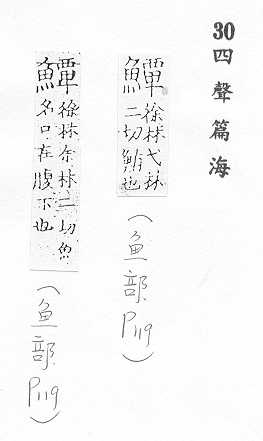 30四聲篇海
鱏
徐林弋林
二切鮪也
(魚部 P119)
鱏
徐林余林二切魚
名口在腹下也
(魚部 P119)